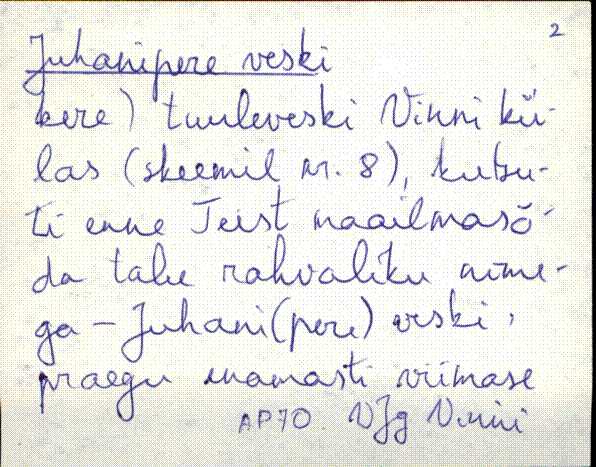 2
Juhanipere veski
kere) tuuleveski Vinni kü-
las (skeemil nr. 8), kutsu-
ti enne Teist maailmasõ-
da talu rahvaliku nime-
ga – Juhani(pere) veski,
praegu enamasti viimase
AP70. VJg Vinni